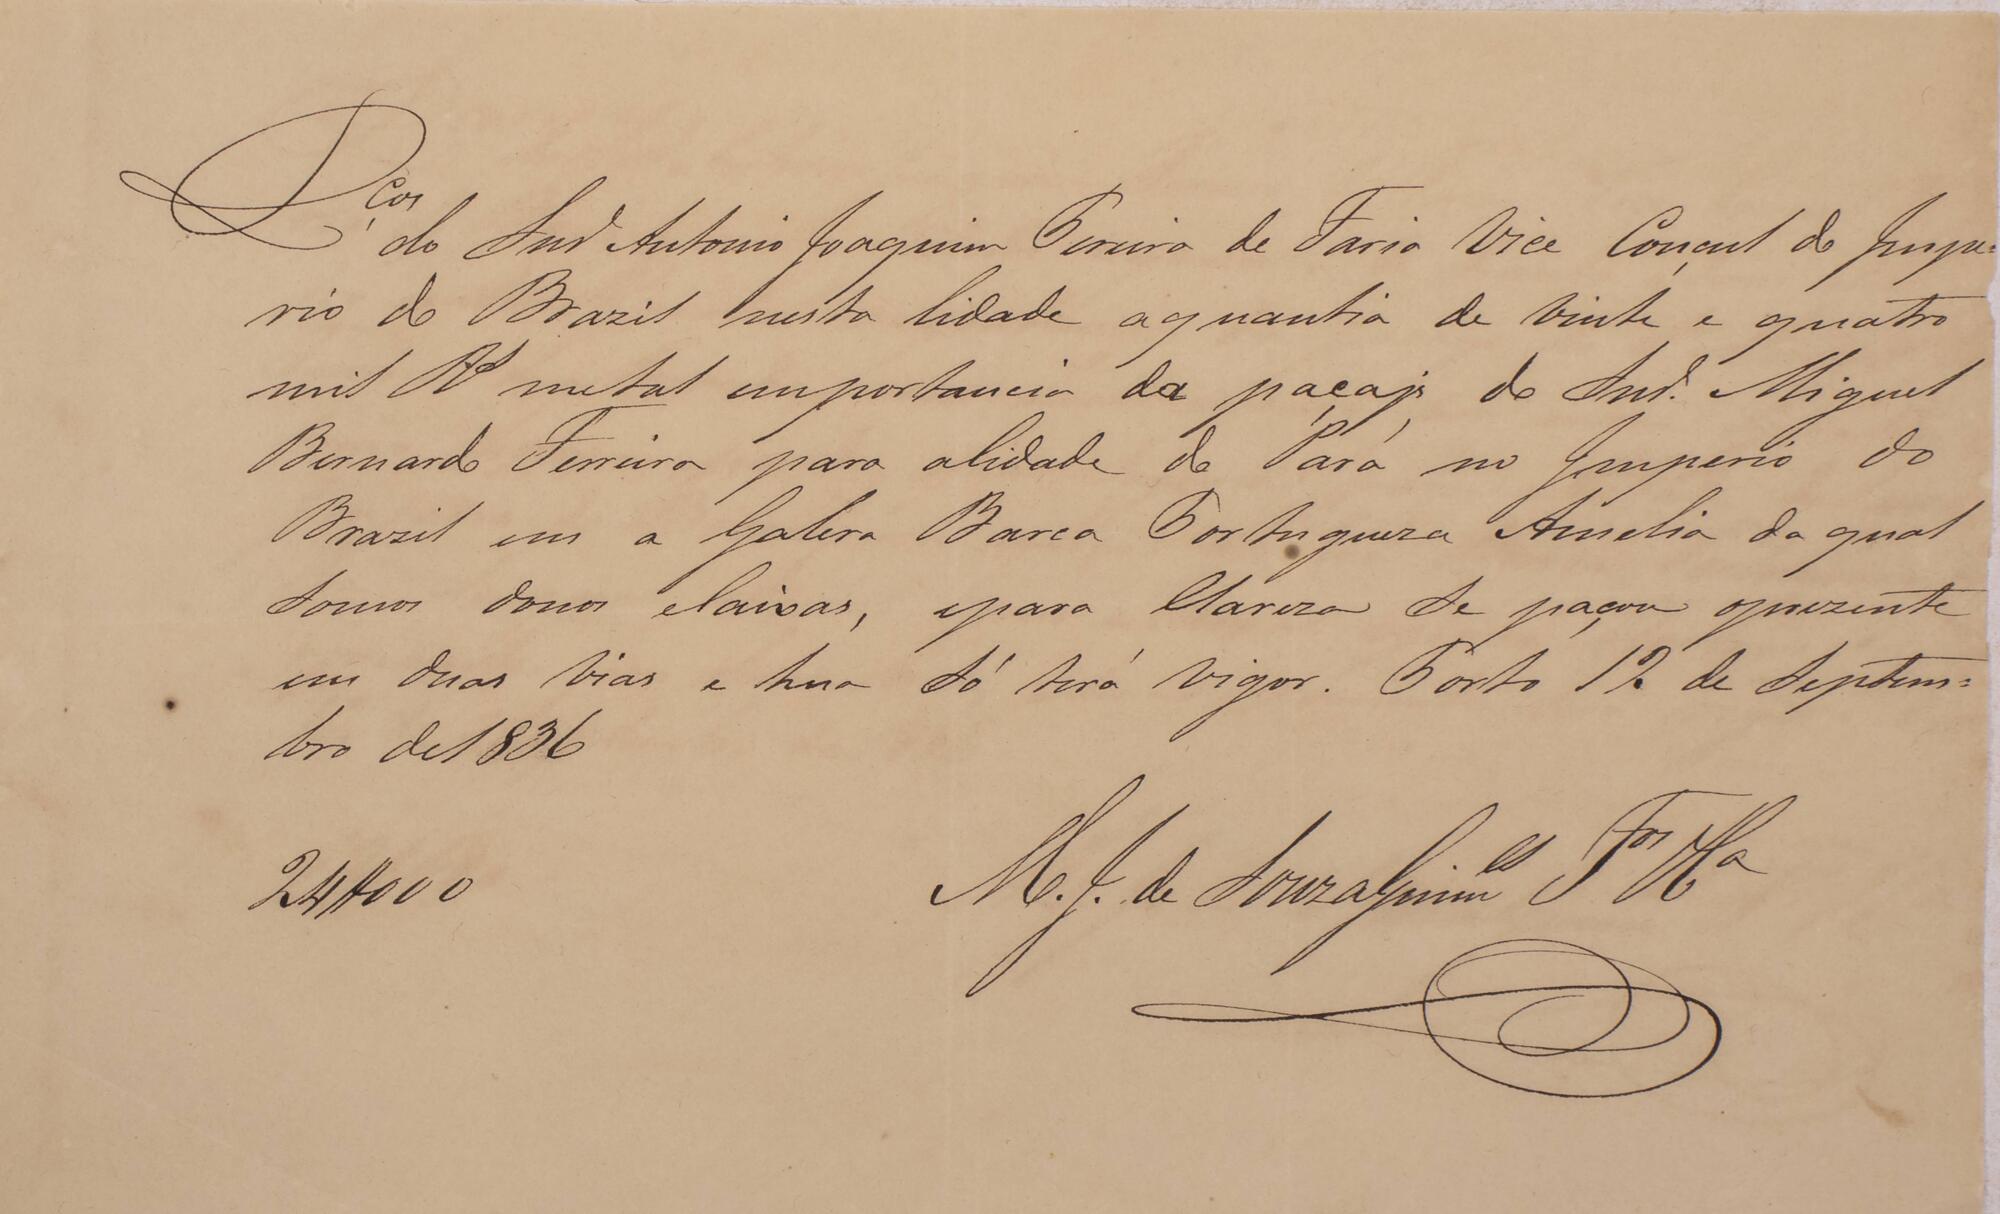 R.cos do Snr Antonio Joaquim Pereira de Faria Vice Conçul do Impe=
rio do Brazil nesta Cidade aquantia de Vinte e quatro
mil Rs metal emportancia da paçaje do Snr. Miguel
Bernardo Ferreira para aCidade do Pará no Imperio do
Brazil em a Galera Barca Portugueza Amelia da qual
somos donos eCaixas, epara Clareza se paçou oprezente
em duas Vias e hua só terá Vigor. Porto 12 de Septem=
bro de 1836
24#000 M. J. de SouzaGuim.es F.os & Ca